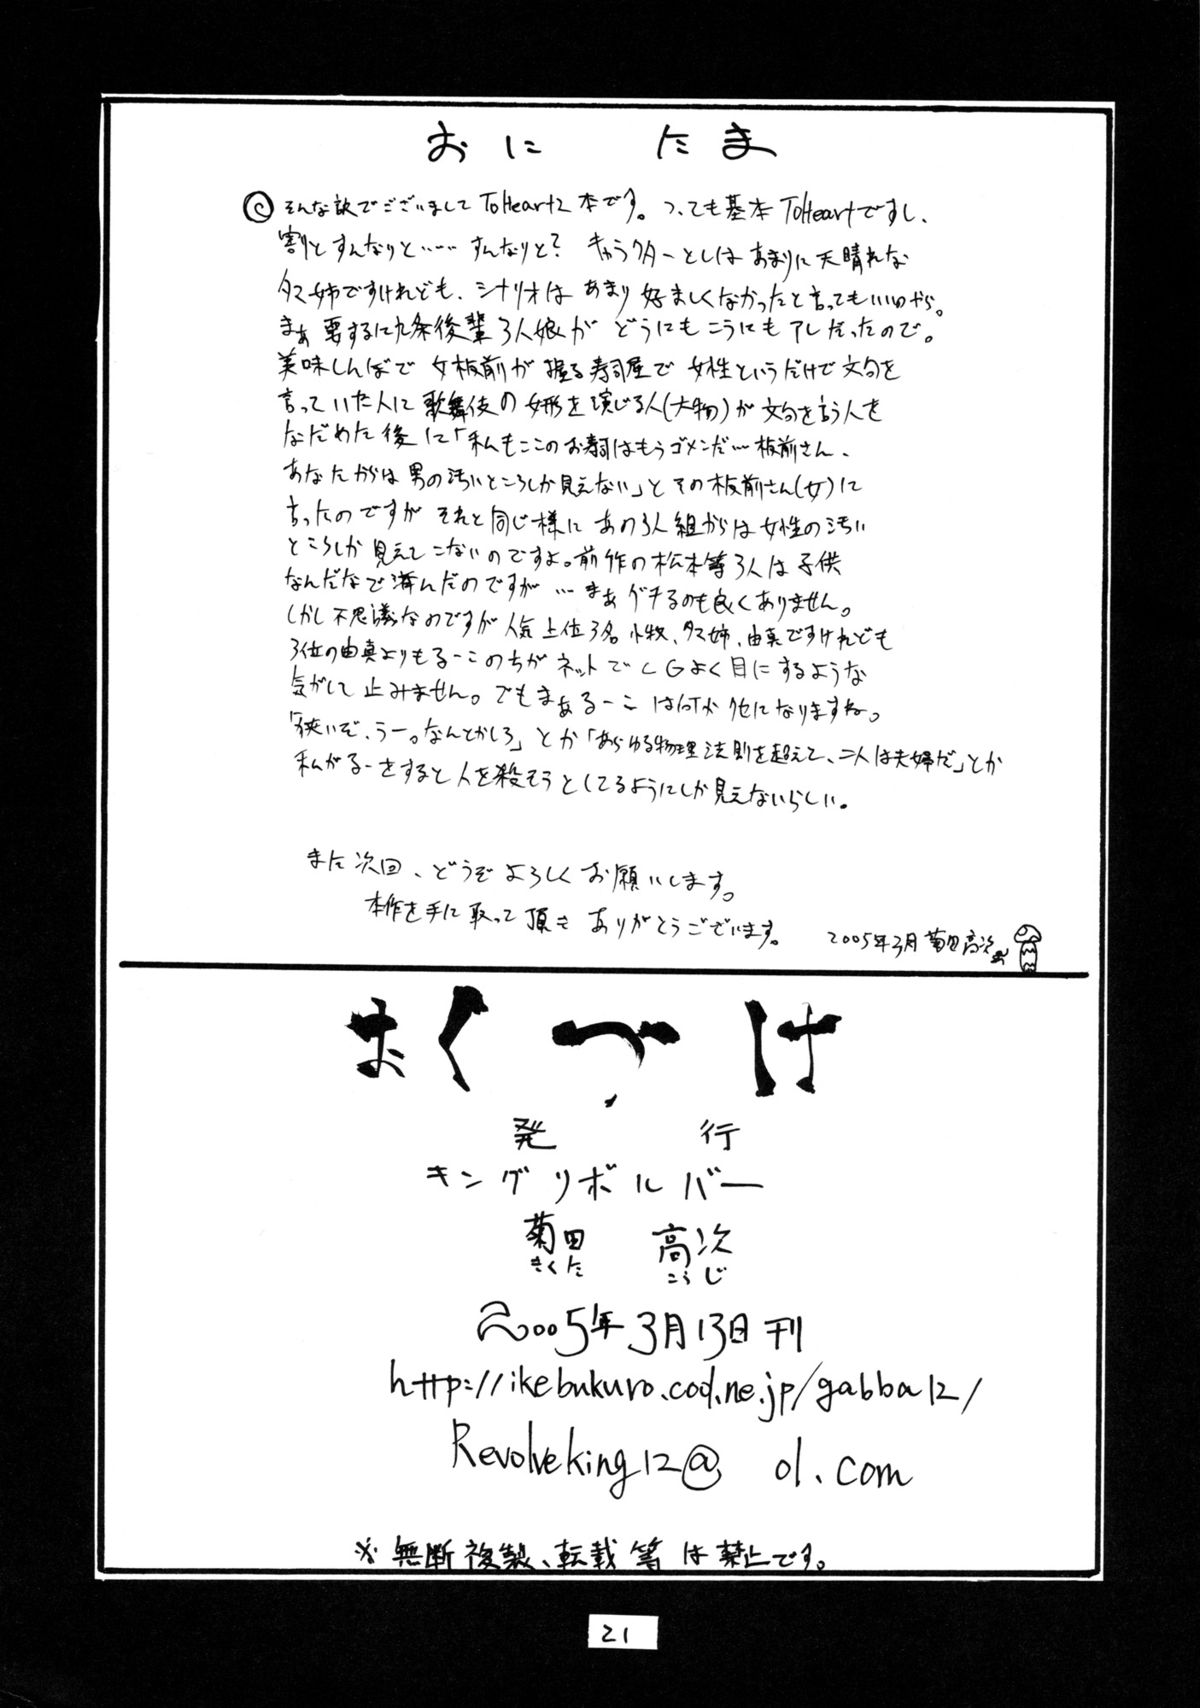 おに　たま
そんな訳でございまして ToHeart2 本です。つっても基本 ToHeartですし、
割とすんなりと…… すんなりと? キャラクターとしはあまりに天晴れな
タマ姉ですけれども、シナリオは あまり 好ましくなかったと言ってもいいのやら。
まぁ 要するに九条後輩3人娘が どうにもこうにもアレだったので。
美味しんぼで 女板前が 握る寿司屋で 女性というだけで文句を
言っていた人に 歌舞伎の女形を演じる人(大物)が 文句を言う人を
なだめた後に「私もここのお寿司はもうゴメンだ…板前さん、
あなたからは 男の汚いところしか見えない」とその板前さん(女)に
言ったのですが それと同じ様に あの3人組からは女性の汚い
ところしか 見えてこないのですよ。前作の松本等3人は子供
なんだなで済んだのですが …まぁグチるのも良くありません。
しかし不思議なのですが 人気上位3名 小牧、タマ姉、由真ですけれども
3位の由真よりもるーこのちがネットでCGよく目にするような
気がして止みません。でもまぁるーこは何か他になりますね。
「狭いぞ、うー。なんとかしろ」とか「あらゆる物理法則を超えて、二人は夫婦だ」とか
私がるーをすると人を殺そうとしてるようにしか見えないらしい。
また次回、どうぞよろしくお願いします。
本作を手に取って頂き ありがとうございます。
2005年3月 菊田高次
おくづけ
発行
キングリボルバー
菊田　高次
きくた　こうじ
2005年3月13日刊
http://ikebukuro.cool.ne.jp/gabba12/
Revolveking12@ ol.com
※無断複製、転載等は禁止です。
21